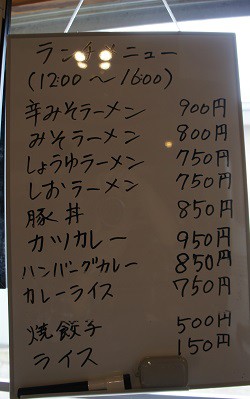 ランチメニュー
(12:00〜16:00)
辛みそラーメン 900円
みそラーメン 800円
しょうゆラーメン 750円
しおラーメン 750円
豚丼 850円
カツカレー 950円
ハンバーグカレー 850円
カレーライス 750円
焼餃子 500円
ライス 150円